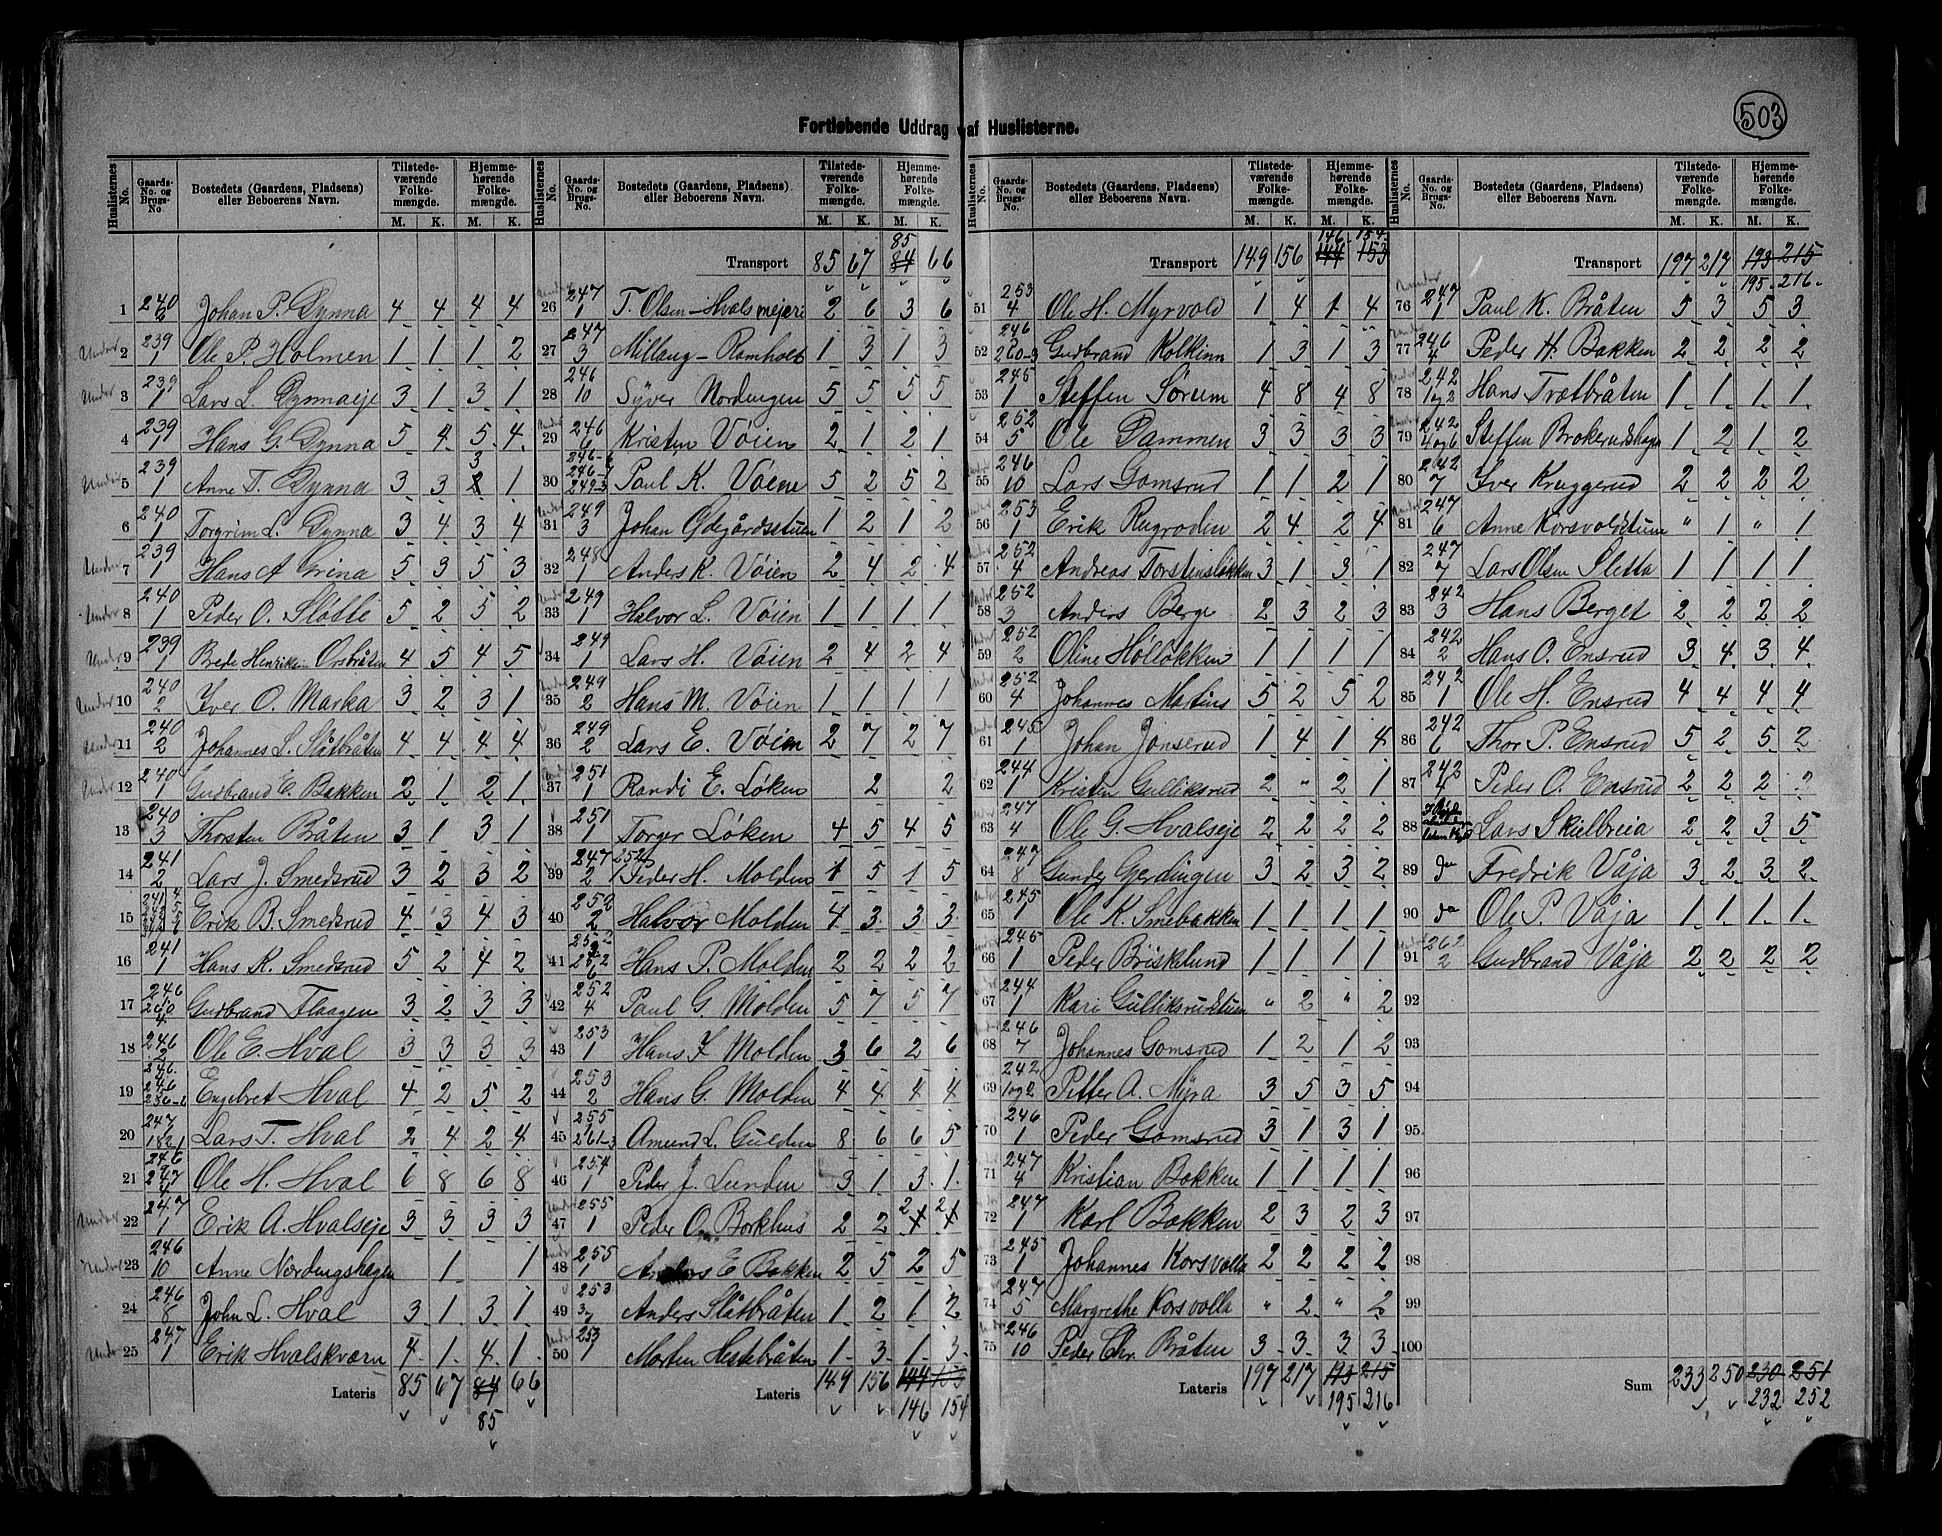 503
Fortløbende Uddrag af Huslisterne.
Huslisternes No. | Gaards-No. og Brugs-No. | Bostedets (Gaardens, Pladsens) eller Beboerens Navn. | Tilstedeværende Folkemængde. M. K. | Hjemmehørende Folkemængde. M. K.
1 240 Johan P. Dynna 4 4 4 4
Under 2 239 1 Ole P. Holmen 1 1 1 2
Under 3 239 1 Lars L. Dynnaeje 3 1 3 1
4 239 1 Hans G. Dynna 5 4 5 4
Under 5 239 1 Anne T. Dynna 3 3 3 1
6 240 1 Torgrim L. Dynna 3 4 3 4
Under 7 239 1 Hans A Grina 5 3 5 3
Under 8 240 1 Peder O. Sløtte 5 2 5 2
Under 9 239 1 Brede Henriksen Orsbråten 4 5 4 5
Under 10 240 2 Iver O. Marka 3 2 3 1
Under 11 240 2 Johannes L. Slåtbråten 4 4 4 4
Under 12 240 1 Gudbrand E. Bakken 2 1 2 1
13 240 3 Thorsten Bråten 3 1 3 1
14 241 2 Lars J. Smedsrud 3 2 3 2
15 Erik B. Smedsrud 4 3 4 3
16 241 1 Hans K. Smedsrud 5 2 4 2
17 246 Gudbrand Flaagen 3 2 3 3
18 246 2 Ole E. Hval 3 3 3 3
19 246 Engebret Hval 4 2 5 2
20 247 Lars T. Hval 2 4 2 4
21 246 247 4 Ole H. Hval 6 8 6 8
Under 22 247 1 Erik A. Hvalseje 3 3 3 3
Under 23 246 10 Anne Nordingshagen 1 1
24 246 8 John L. Hval 3 1 3 1
Under 25 247 1 Erik Hvalskværn 4 1 4 1
Lateris 85 67 84 66
85
Huslisternes No. | Gaards-No. og Brugs-No. | Bostedets (Gaardens, Pladsens) eller Beboerens Navn. | Tilstedeværende Folkemængde. M. K. | Hjemmehørende Folkemængde. M. K.
85
Transport 85 67 84 66
Under 26 247 1 T. Olsen - Hvals mejeri 2 6 3 6
27 247 3 Millaug - Ramholt 1 3 1 3
28 246 10 Syver Nordengen 5 5 5 5
Under 29 246 6 Kristen Vøien 2 1 2 1
30 Paul K. Vøien 5 2 5 2
31 249 3 Johan Ødegårdsetuen 1 2 1 2
32 248 1 Anders K. Vøien 2 4 2 4
33 249 1 Halvor L. Vøien 1 1 1 1
34 249 1 Lars H. Vøien 2 4 2 4
35 249 2 Hans M. Vøien 1 1 1 1
36 249 2 Lars E. Vøien 2 7 2 7
37 251 1 Randi E. Løken 2 2
38 251 1 Torgr Løken 4 5 4 5
39 247 2 252 1 Peder H. Molden 1 5 1 5
40 252 2 Halvor Molden 4 3 3 3
41 252 6 Hans P. Molden 2 2 2 2
42 252 4 Paul G. Molden 5 7 5 7
43 253 1 Hans F Molden 3 6 2 6
44 253 2 Hans G. Molden 4 4 4 4
45 255 261-3 Amund L. Gulden 8 6 6 5
46 254 1 Peder J. Lunden 3 1 3 1
Under 47 255 1 Peder O. Borkhus 2 2 2 2
Under 48 255 1 Anders E Bakken 2 5 2 5
49 253 Anders Slåtbråten 1 2 1 2
Under 50 253 1 Morten Hestebråten 1 3 1 3
Lateris 149 156 144 153
146 154
Huslisternes No. | Gaards-No. og Brugs-No. | Bostedets (Gaardens, Pladsens) eller Beboerens Navn. | Tilstedeværende Folkemængde. M. K. | Hjemmehørende Folkemængde. M. K.
146 154
Transport 149 156 144 153
51 253 4 Ole H. Myrvold 1 4 1 4
52 246 260-3 Gudbrand Kolkinn 1 3 1 3
53 245 1 Steffen Sørum 4 8 4 8
54 252 5 Ole Dammen 3 3 3 3
Under 55 246 10 Lars Gomsrud 1 1 2 1
56 253 1 Erik Rugroden 2 4 2 4
57 252 4 Andreas Torstensløkken 3 1 3 1
Under 58 252 3 Anders Berge 2 3 2 3
59 252 2 Oline Høløkken 1 1 1 1
60 252 4 Johannes Martins 5 2 5 2
61 245 1 Johan Jonserud 1 4 1 4
62 244 1 Kristen Gulliksrud 2 " 2 1
63 247 4 Ole G. Hvalseje 2 2 2 2
64 247 8 Gunder Gjerdingen 3 2 3 2
65 245 1 Ole K. Smebakken 1 1 1 1
66 245 1 Peder Briskelund 1 1 1 1
67 244 1 Kari Gulliksrudstuen " 2 " 2
68 246 7 Johannes Gomsrud 1 2 1 2
69 242 1og2 Petter A. Myra 3 5 3 5
70 246 1 Peder Gomsrud 3 1 3 1
71 247 4 Kristian Bakken 1 1 1 1
72 247 1 Karl Bakken 2 3 2 3
73 245 1 Johannes Korsvolla 2 2 2 2
74 247 5 Margrethe Korsvolla " 2 " 2
75 246 10 Peder Chr. Bråten 3 3 3 3
Lateris 197 217 193 215
195 216
Huslisternes No. | Gaards-No. og Brugs-No. | Bostedets (Gaardens, Pladsens) eller Beboerens Navn. | Tilstedeværende Folkemængde. M. K. | Hjemmehørende Folkemængde. M. K.
Transport 197 217 193 215
195 216
Under 76 247 1 Paul K. Bråten 5 3 5 3
77 246 4 Peder H. Bakken 2 2 2 2
78 242 1og2 Hans Trætbråten 1 1 1 1
79 242 4og6 Steffen Brokerudshagen 1 2 1 2
80 242 7 Iver Kruggerud 2 2 2 2
81 247 6 Anne Korsvoldstuen " 1 " 1
82 247 7 Lars Olsen Sletta 1 1 1 1
83 242 3 Hans Berget 2 2 2 2
84 242 2 Hans O. Ensrud 3 4 3 4
85 242 1 Ole H. Ensrud 4 4 4 4
86 242 6 Thor P. Ensrud 5 2 5 2
87 242 4 Peder O. Ensrud 2 2 2 2
88 Lars Skielbreia 2 2 3 5
89 do Fredrik Våja 3 2 3 2
90 do Ole P. Våja 1 1 1 1
91 262 2 Gudbrand Våja 2 2 2 2
92
93
94
95
96
97
98
99
100
Sum 233 250 230 251
232 252